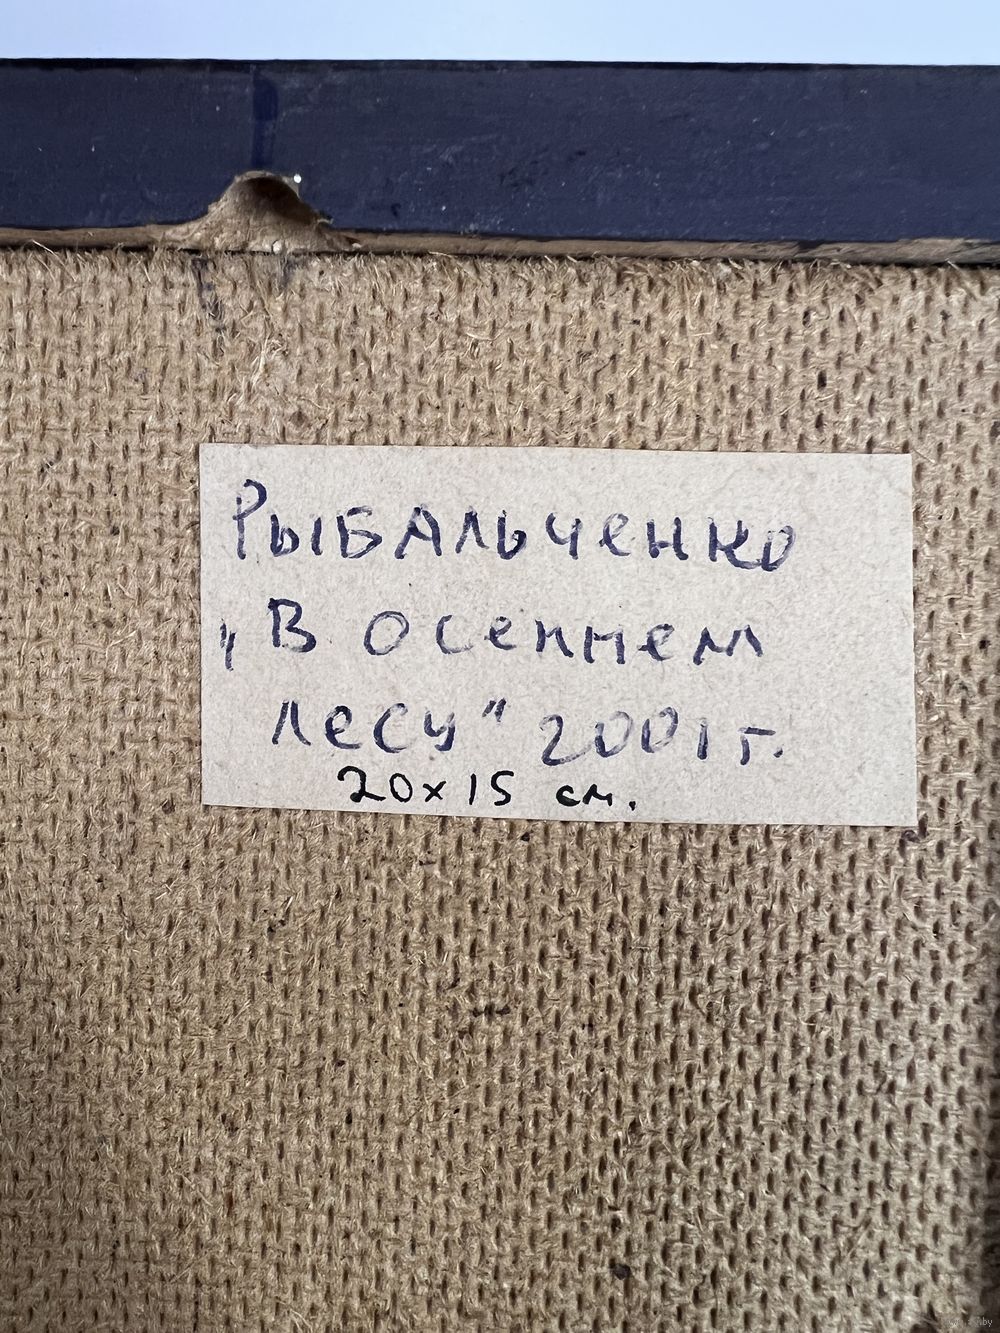 Рыбальченко
„В осеннем
лесу" 2001 г.
20x15 см.